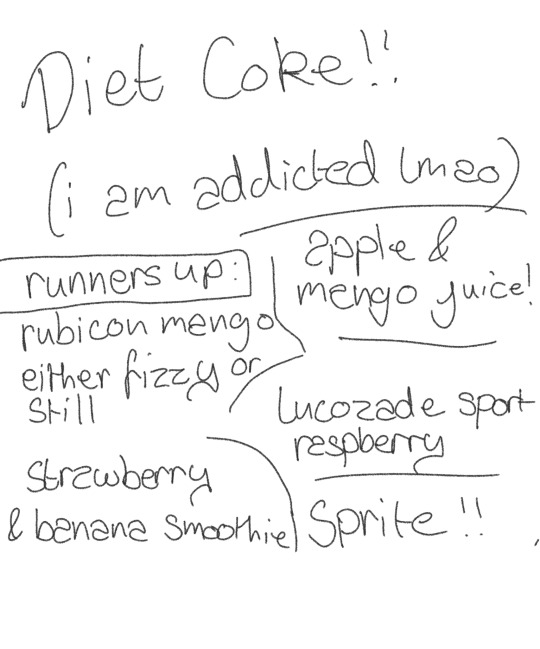 Diet Coke!!
(i am addicted lmao)
runners up:
rubicon mango
either fizzy or
still
strawberry
& banana smoothie
apple &
mango juice!
lucozade sport
raspberry
Sprite!!